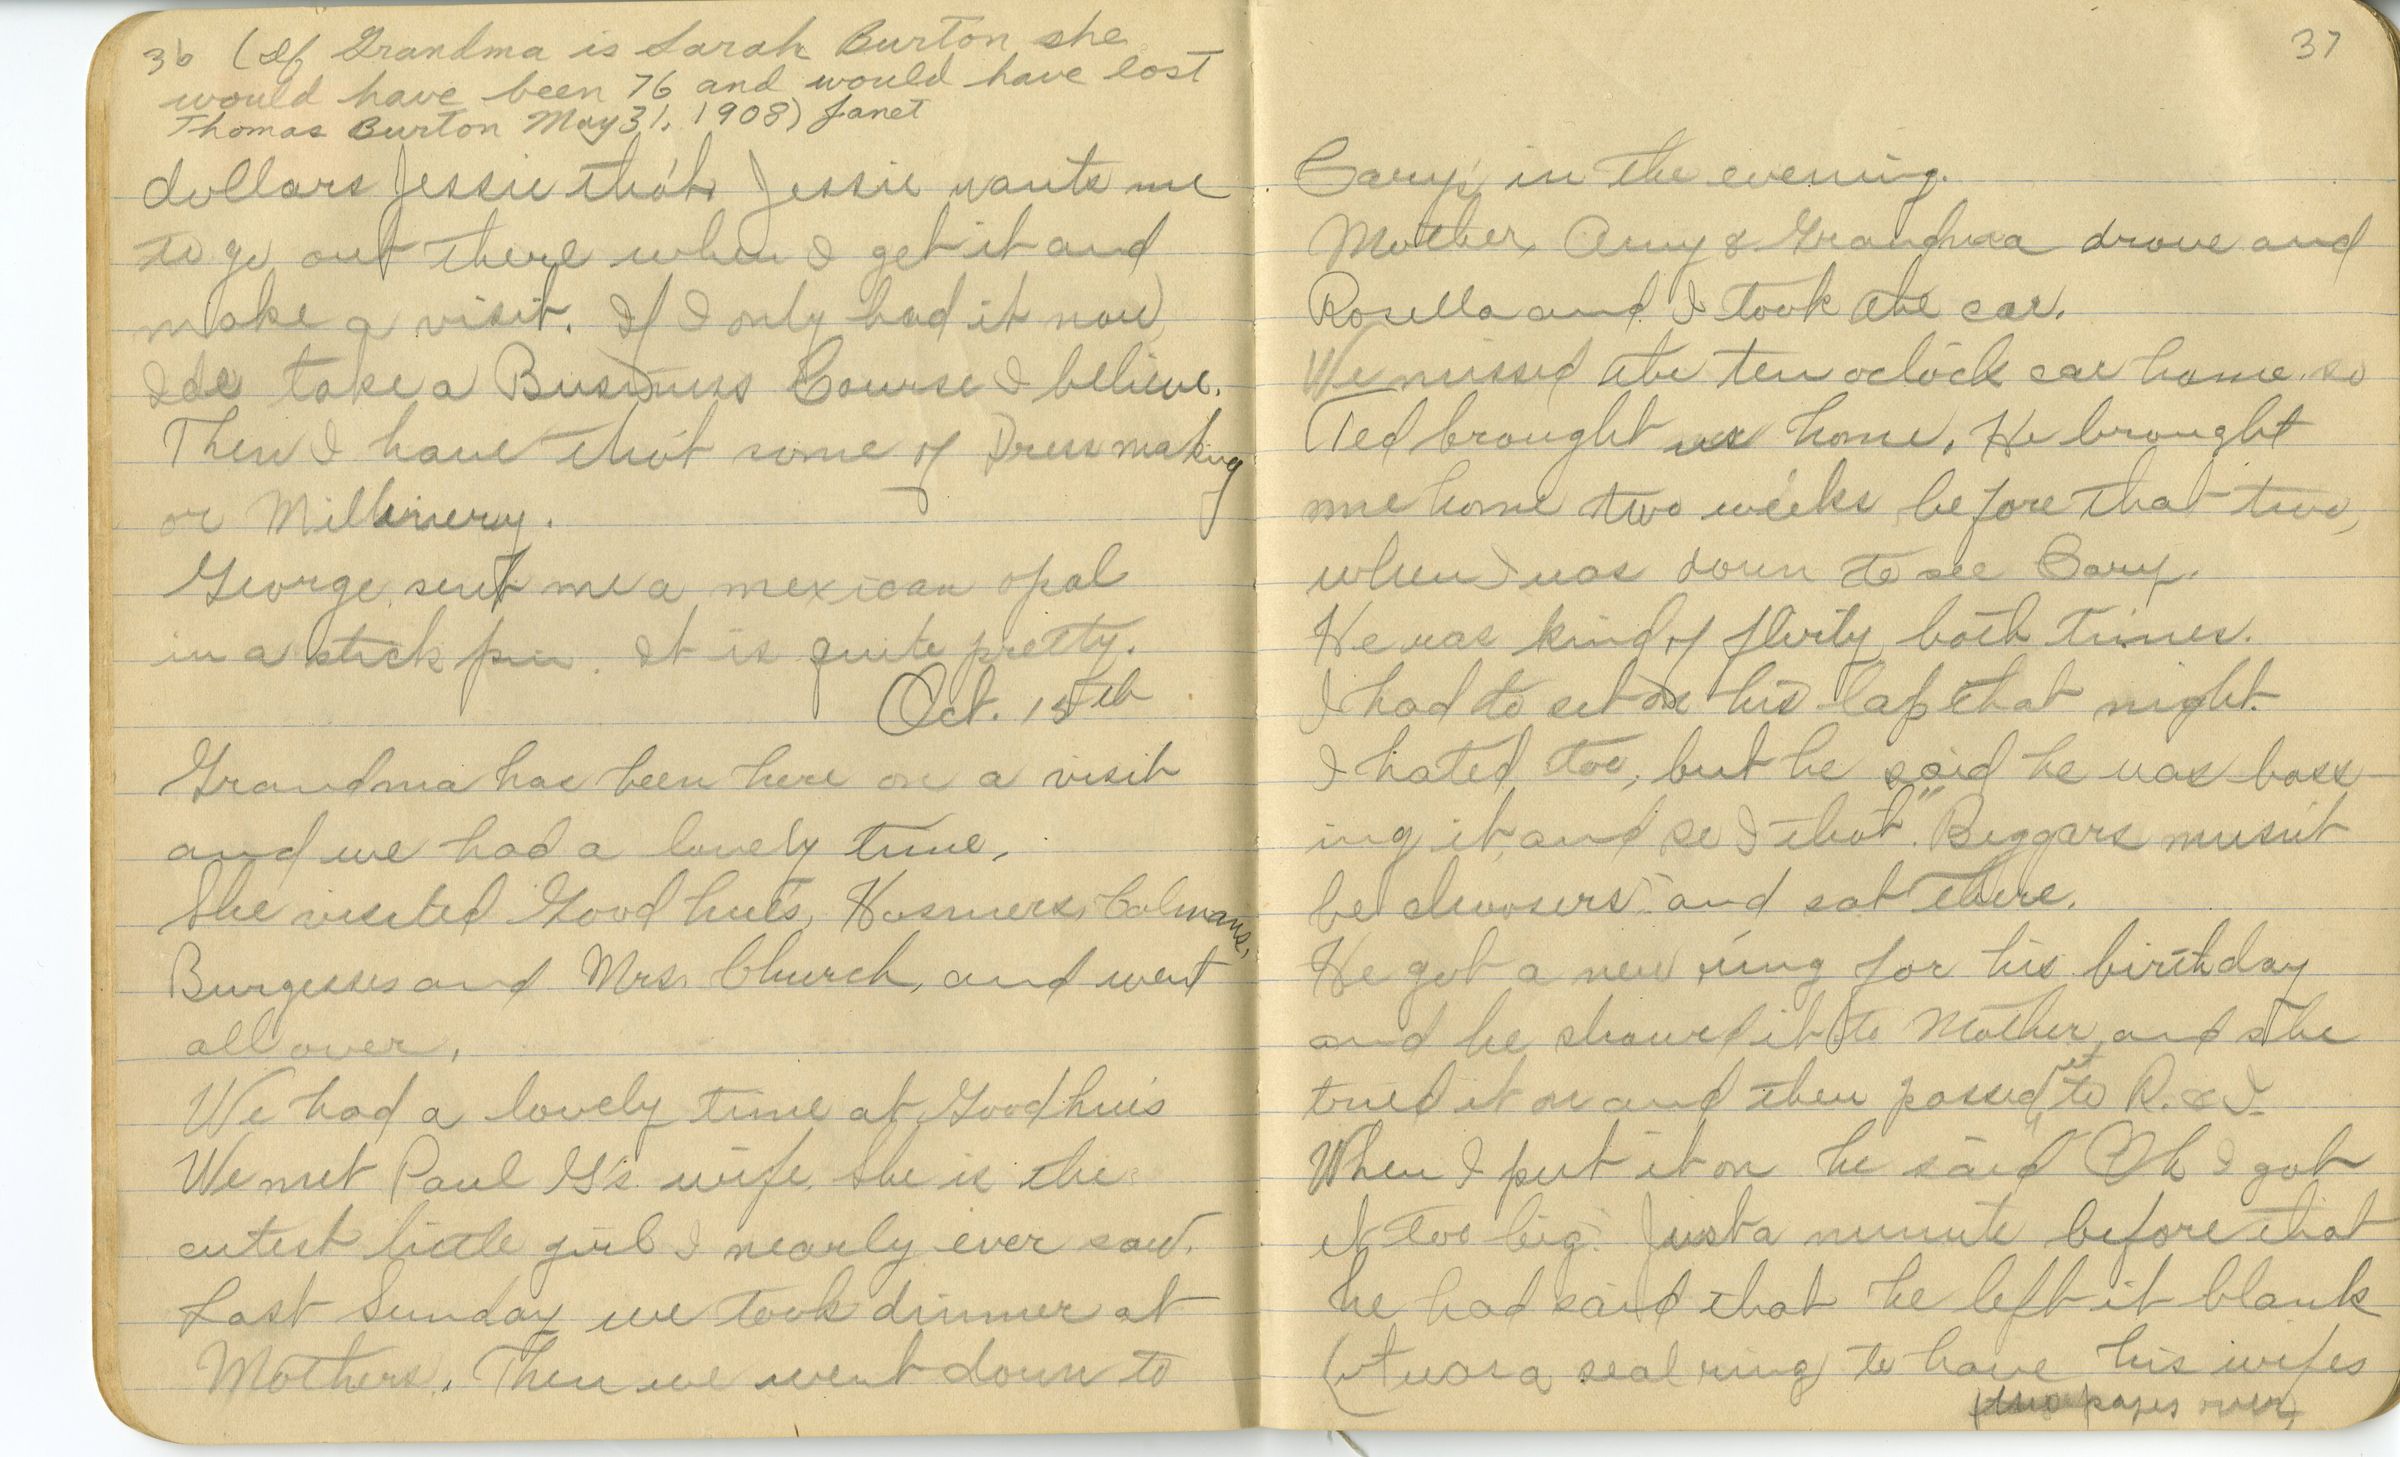 36 (If Grandma is Sarah Burton she
would have been 76 and would have lost
Thomas Burton May 31, 1908) Janet
dollars Jessie tho't. Jessie wants me
to go out there when I get it and
make a visit. If I only had it now
I'de take a Business Course I believe.
Then I have tho't some of Dressmaking
or Millinery.
George sent me a mexican opal
in a stick pin. It is quite pretty.
Oct. 15th
Grandma has been here on a visit
and we had a lovely time.
She visited Goodhue's, Hosmers, Colmans,
Burgesses and Mrs. Church, and went
all over.
We had a lovely time at Goodhue's
We met Paul G's wife. She is the
cutest little girl I nearly ever saw.
Last Sunday we took dinner at
Mothers. Then we went down to
37
Cary's in the evening.
Mother, Amy & Grandma drove and
Rosella and I took the car.
We missed the ten oclock car home so
Ted brought us home. He brought
me home two weeks before that two,
when I was down to see Cary.
He was kind of flirty both times.
I had to set on his lap that night.
I hated too, but he said he was boss
ing it, and so I tho't "Beggars musn't
be choosers" and sat there.
He got a new ring for his birthday
and he showed it to Mother and she
tried it on and then passed it to R. & I.
When I put it on he said "Oh I got
it too big." Just a minute before that
he had said that he left it blank
(it was a seal ring) to have his wifes
(two pages over)